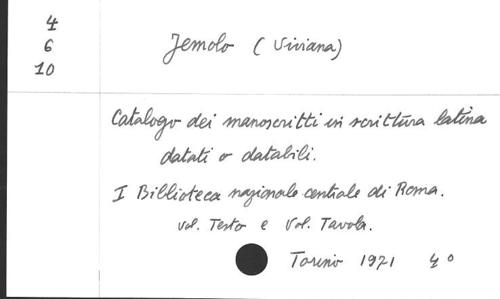 4
6
10
Jemolo (Viviana)
Catalogo dei manoscritti in scrittura latina
datati o databili.
I Biblioteca nazionale centrale di Roma.
vol. Testo e Vol. Tavola.
Torino 1971 4°